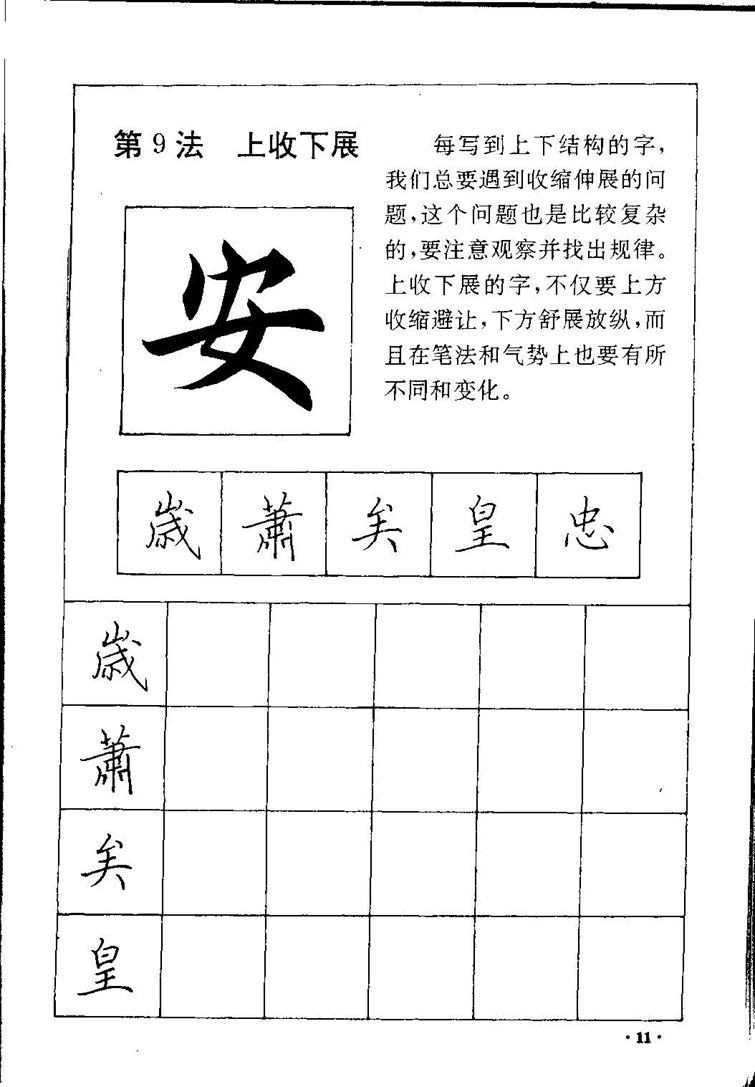 第9法　上收下展
每写到上下结构的字，
我们总要遇到收缩伸展的问
题，这个问题也是比较复杂
的，要注意观察并找出规律。
上收下展的字，不仅要上方
收缩避让，下方舒展放纵，而
且在笔法和气势上也要有所
不同和变化。
安
歲 蕭 矣 皇 忠
歲
蕭
矣
皇
·11·